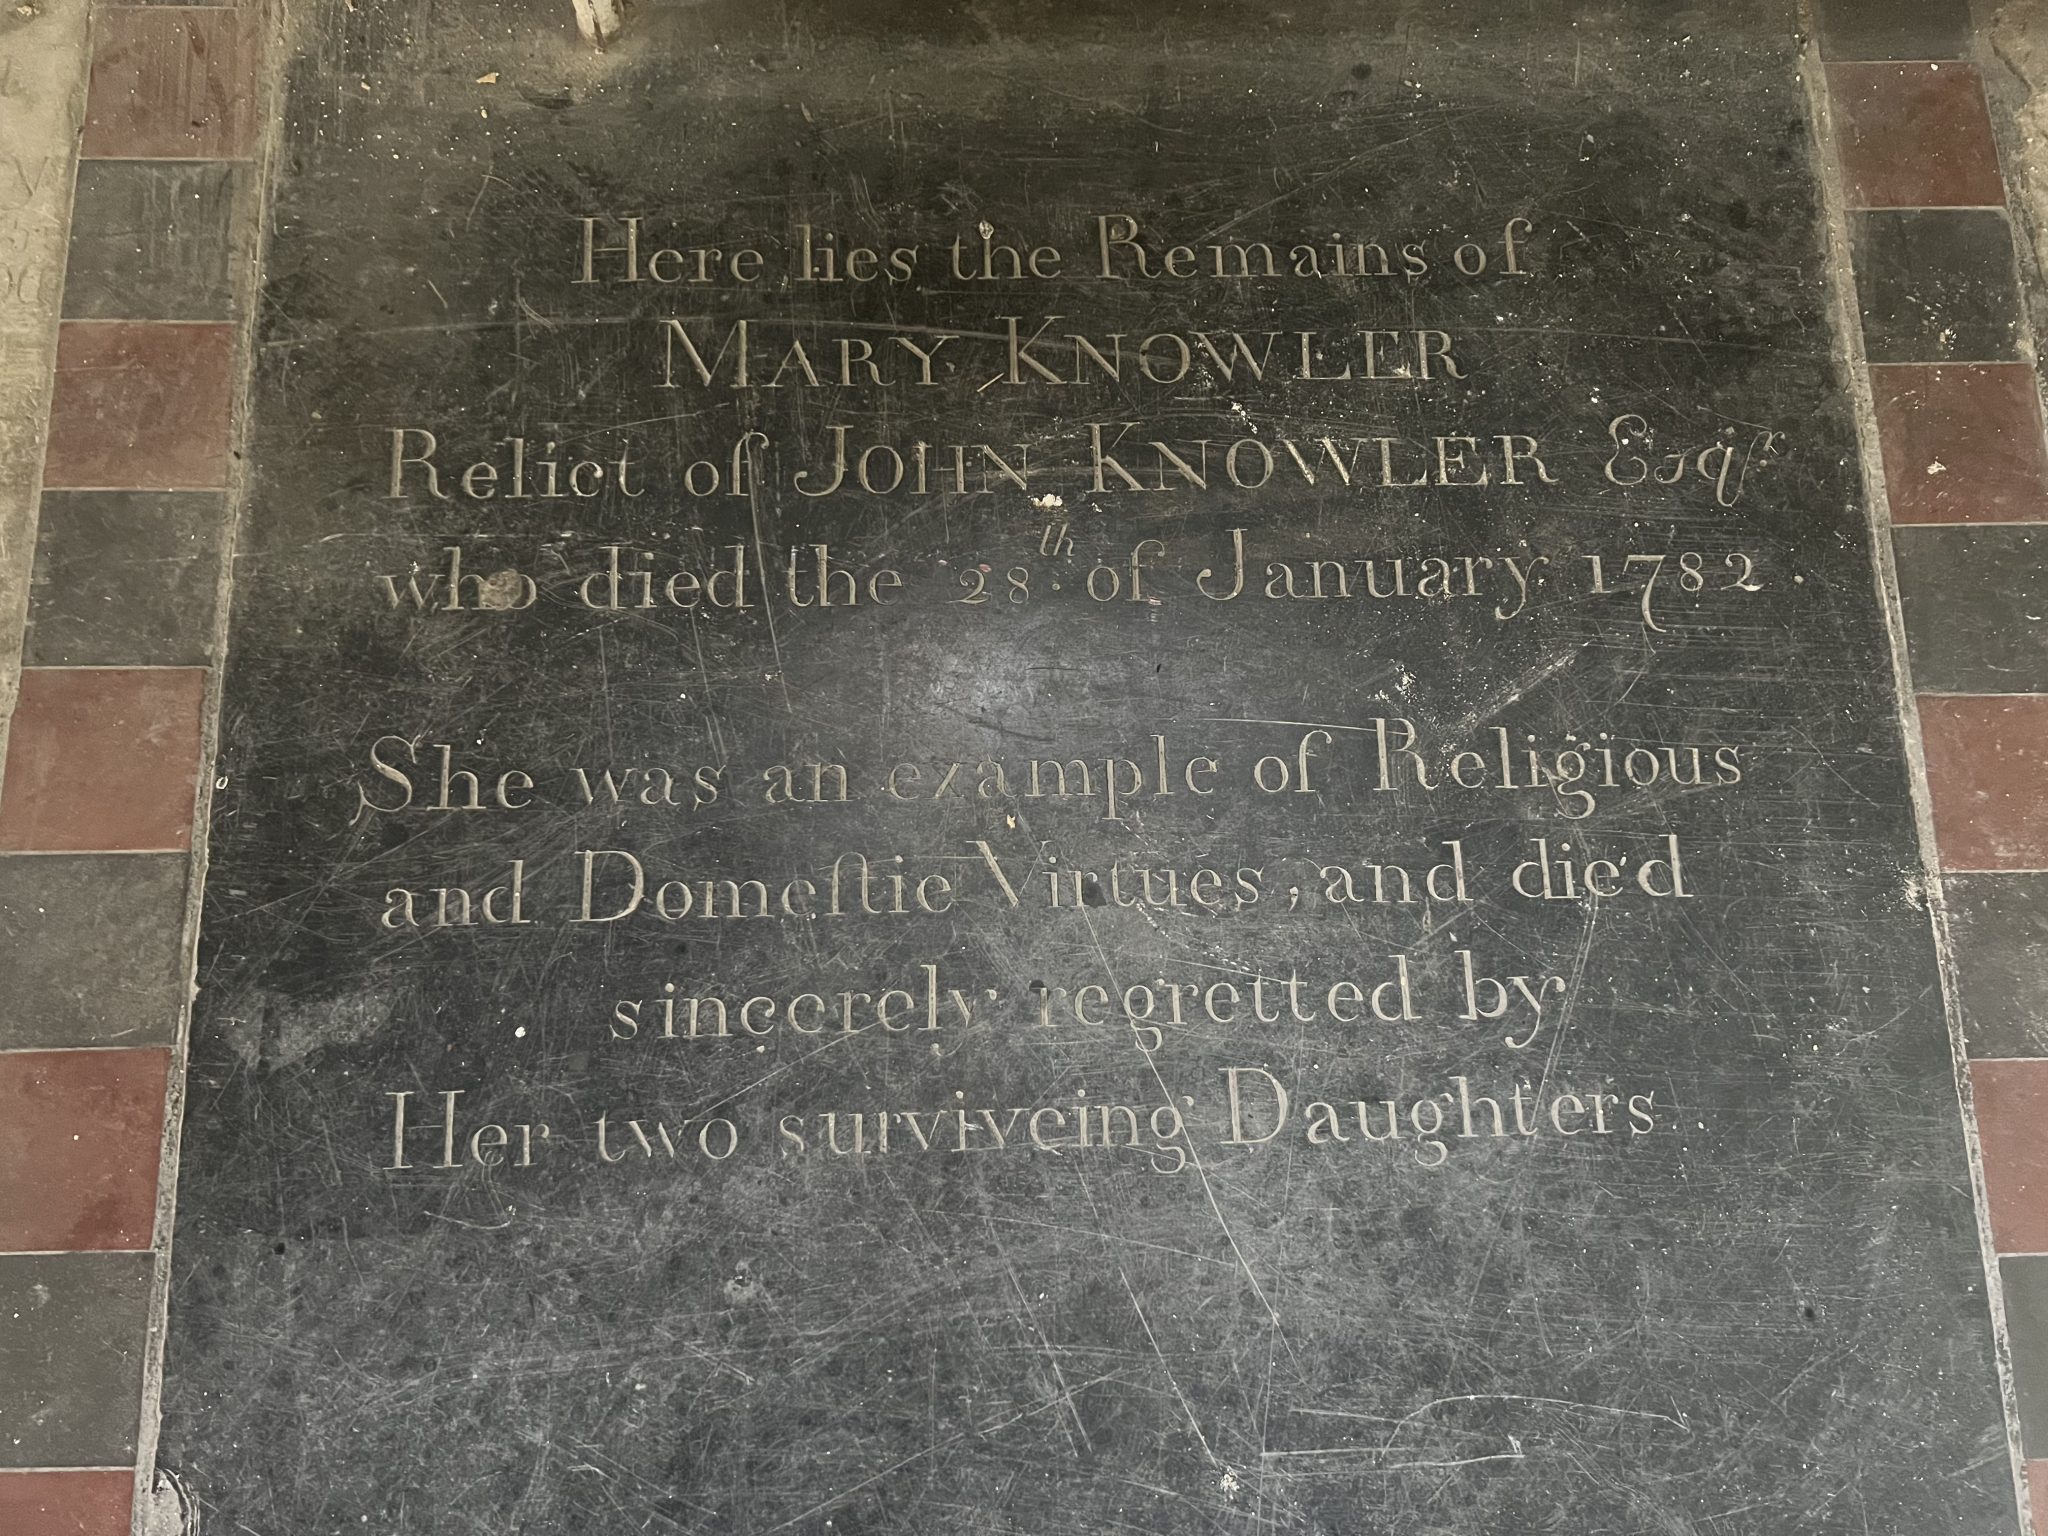 Here lies the Remains of
MARY KNOWLER
Relict of JOHN KNOWLER Esqr.
who died the 28th. of January 1782.
She was an example of Religious
and Domeſtic Virtues, and died
sincerely regretted by
Her two surviveing Daughters